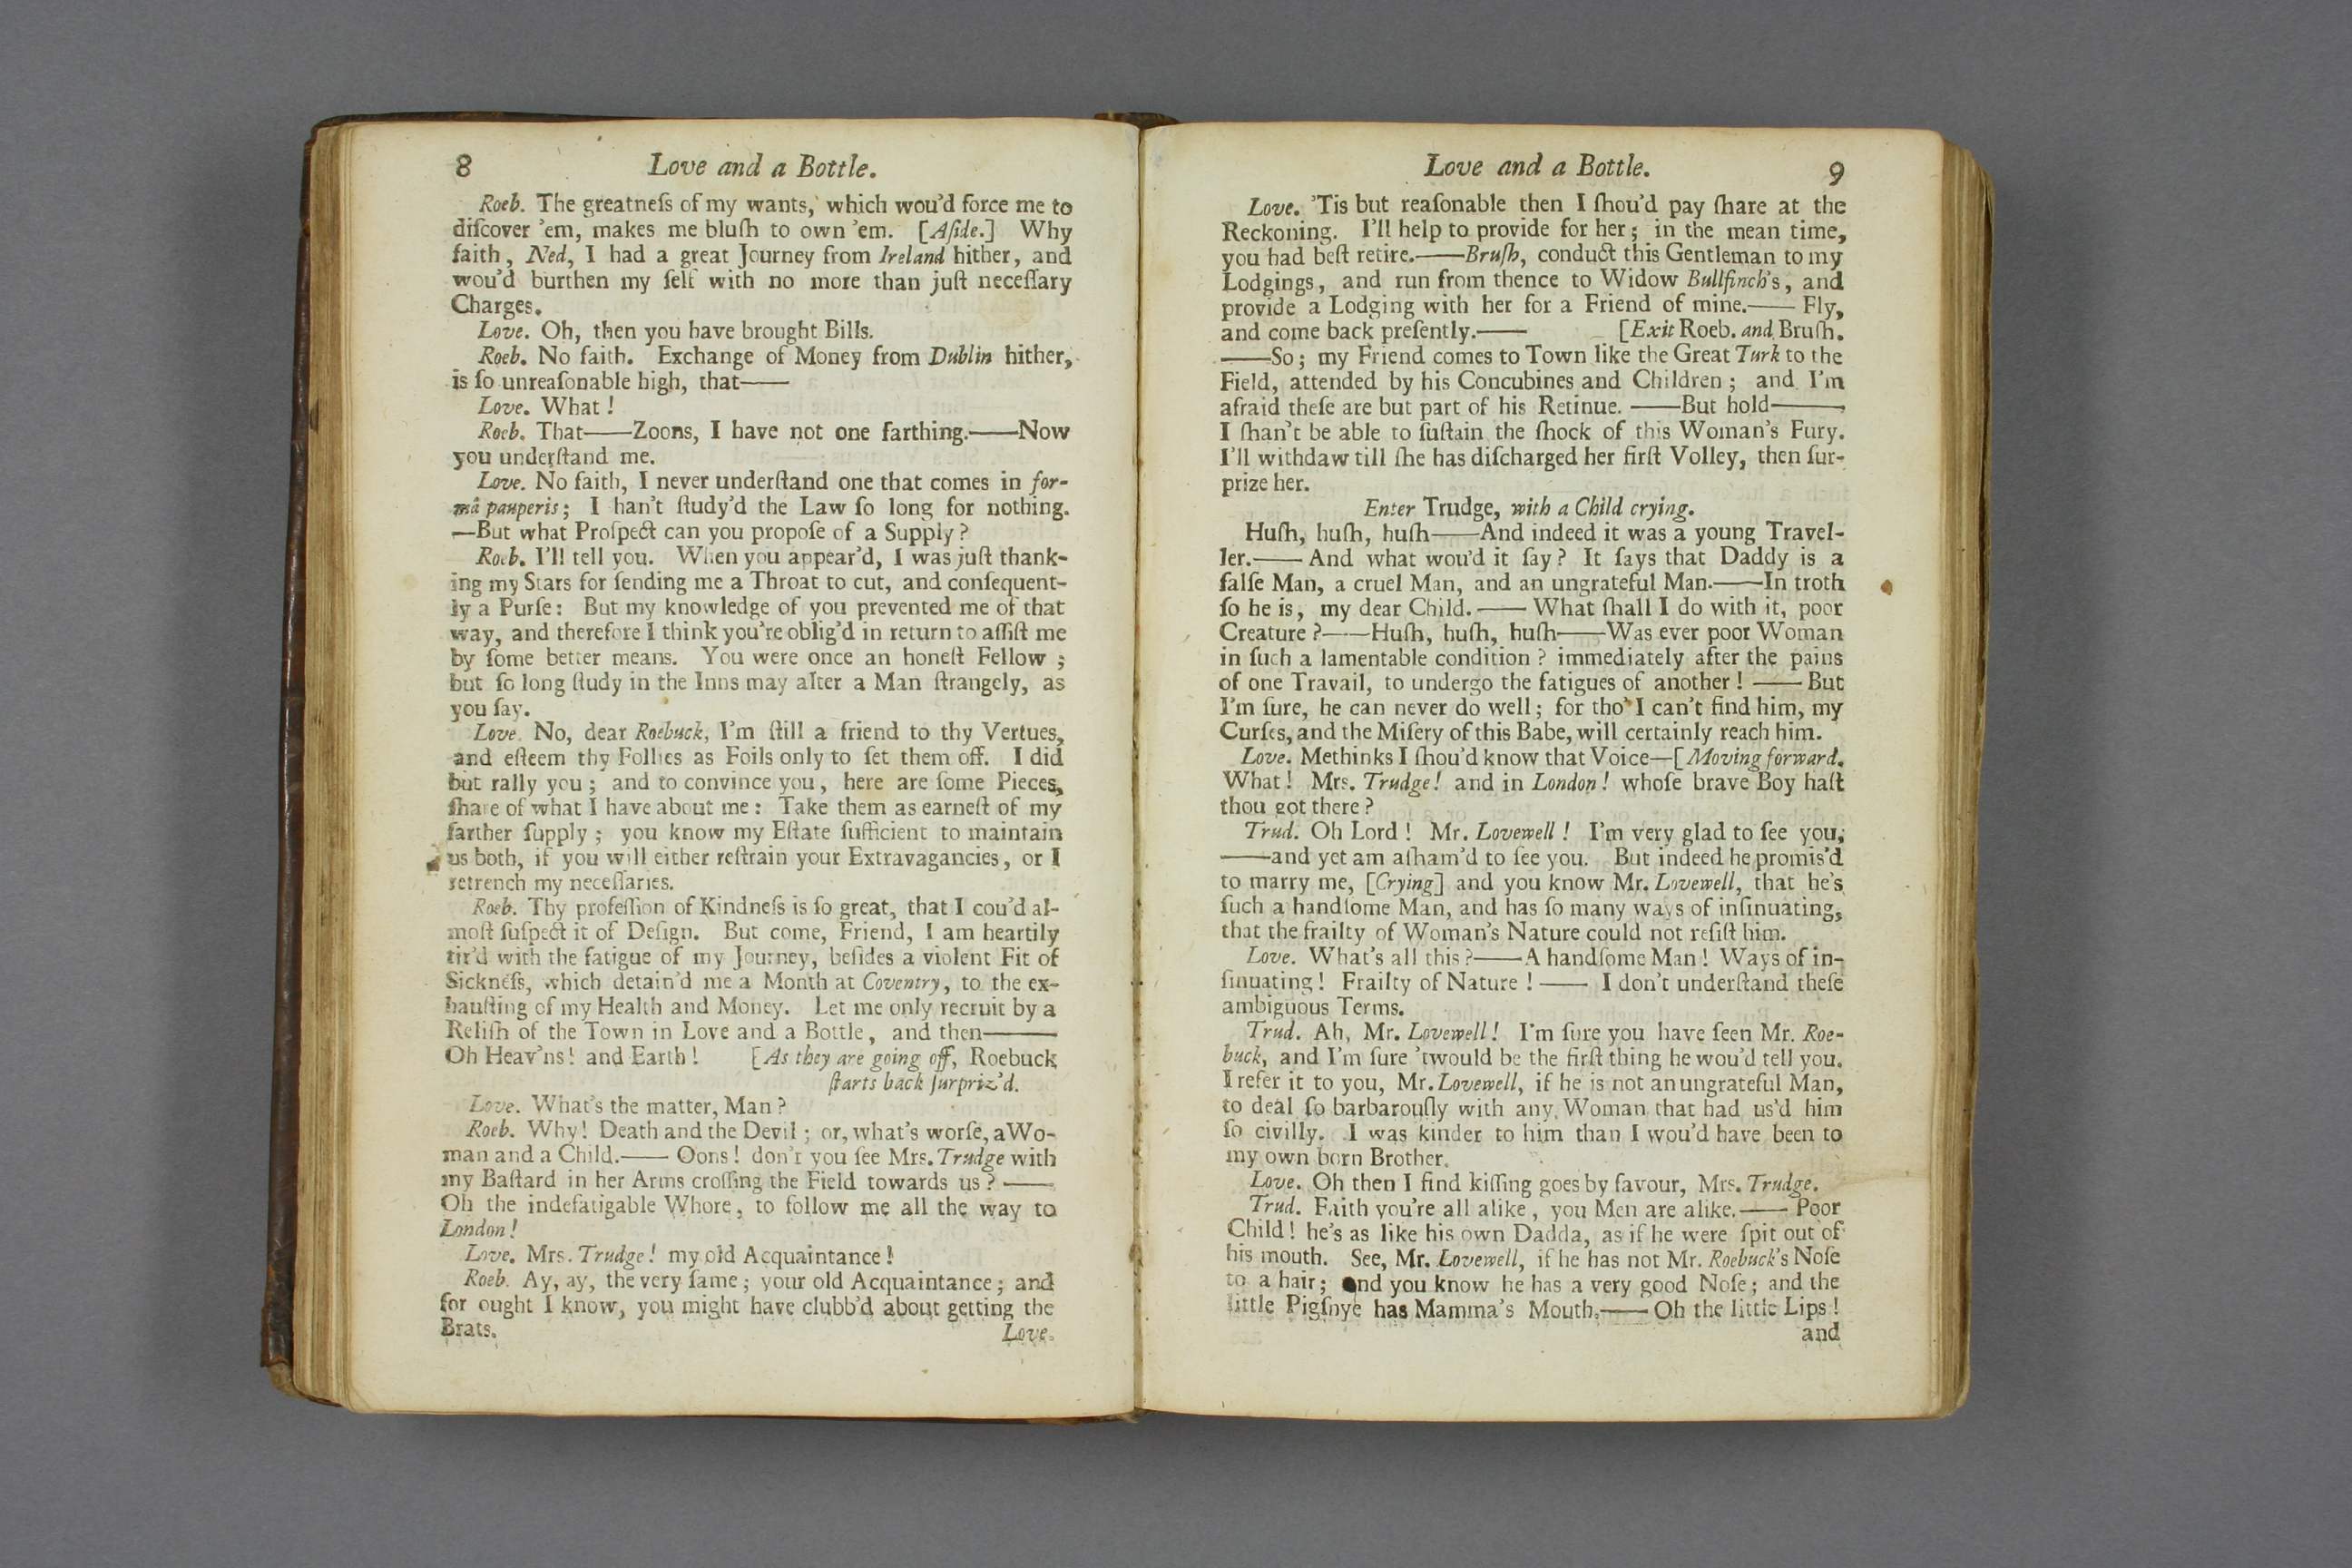 8 Love and a Bottle.
Roeb. The greatneſs of my wants, which wou'd force me to
diſcover 'em, makes me bluſh to own 'em. [Aſide.] Why
faith, Ned, I had a great Journey from Ireland hither, and
wou'd burthen my ſelf with no more than juſt neceſſary
Charges.
Love. Oh, then you have brought Bills.
Roeb. No faith. Exchange of Money from Dublin hither,
is ſo unreaſonable high, that——
Love. What!
Roeb. That——Zoons, I have not one farthing.——Now
you underſtand me.
Love. No faith, I never underſtand one that comes in for-
mâ pauperis; I han't ſtudy'd the Law ſo long for nothing.
—But what Proſpect can you propoſe of a Supply?
Roeb. I'll tell you. When you appear'd, I was juſt thank-
ing my Stars for ſending me a Throat to cut, and conſequent-
ly a Purſe: But my knowledge of you prevented me of that
way, and therefore I think you're oblig'd in return to aſſiſt me
by ſome better means. You were once an honeſt Fellow;
but ſo long ſtudy in the Inns may alter a Man ſtrangely, as
you ſay.
Love. No, dear Roebuck, I'm ſtill a friend to thy Vertues,
and eſteem thy Follies as Foils only to ſet them off. I did
but rally you; and to convince you, here are ſome Pieces,
ſhare of what I have about me: Take them as earneſt of my
farther ſupply; you know my Eſtate ſufficient to maintain
us both, if you will either reſtrain your Extravagancies, or I
retrench my neceſſaries.
Roeb. Thy profeſſion of Kindneſs is ſo great, that I cou'd al-
moſt ſuſpect it of Deſign. But come, Friend, I am heartily
tir'd with the fatigue of my Journey, beſides a violent Fit of
Sickneſs, which detain'd me a Month at Coventry, to the ex-
hauſting of my Health and Money. Let me only recruit by a
Reliſh of the Town in Love and a Bottle, and then——
Oh Heav'ns! and Earth! [As they are going off, Roebuck
ſtarts back ſurpriz'd.
Love. What's the matter, Man?
Roeb. Why! Death and the Devil; or, what's worſe, a Wo-
man and a Child.—— Oons! don't you ſee Mrs. Trudge with
my Baſtard in her Arms croſſing the Field towards us?——
Oh the indefatigable Whore, to follow me all the way to
London!
Love. Mrs. Trudge! my old Acquaintance!
Roeb. Ay, ay, the very ſame; your old Acquaintance; and
for ought I know, you might have clubb'd about getting the
Brats. Love.
Love and a Bottle. 9
Love. 'Tis but reaſonable then I ſhou'd pay ſhare at the
Reckoning. I'll help to provide for her; in the mean time,
you had beſt retire.——Bruſh, conduct this Gentleman to my
Lodgings, and run from thence to Widow Bullfinch's, and
provide a Lodging with her for a Friend of mine.—— Fly,
and come back preſently.—— [Exit Roeb. and Bruſh.
——So; my Friend comes to Town like the Great Turk to the
Field, attended by his Concubines and Children; and I'm
afraid theſe are but part of his Retinue. ——But hold——
I ſhan't be able to ſuſtain the ſhock of this Woman's Fury.
I'll withdaw till ſhe has diſcharged her firſt Volley, then ſur-
prize her.
Enter Trudge, with a Child crying.
Huſh, huſh, huſh——And indeed it was a young Travel-
ler.—— And what wou'd it ſay? It ſays that Daddy is a
falſe Man, a cruel Man, and an ungrateful Man.——In troth
ſo he is, my dear Child.—— What ſhall I do with it, poor
Creature?——Huſh, huſh, huſh——Was ever poor Woman
in ſuch a lamentable condition? immediately after the pains
of one Travail, to undergo the fatigues of another!—— But
I'm ſure, he can never do well; for tho' I can't find him, my
Curſes, and the Miſery of this Babe, will certainly reach him.
Love. Methinks I ſhou'd know that Voice—[Moving forward.
What! Mrs. Trudge! and in London! whoſe brave Boy haſt
thou got there?
Trud. Oh Lord! Mr. Lovewell! I'm very glad to ſee you,
——and yet am aſham'd to ſee you. But indeed he promis'd
to marry me, [Crying] and you know Mr. Lovewell, that he's
ſuch a handſome Man, and has ſo many ways of inſinuating,
that the frailty of Woman's Nature could not reſiſt him.
Love. What's all this?——A handſome Man! Ways of in-
ſinuating! Frailty of Nature!—— I don't underſtand theſe
ambiguous Terms.
Trud. Ah, Mr. Lovewell! I'm ſure you have ſeen Mr. Roe-
buck, and I'm ſure 'twould be the firſt thing he wou'd tell you.
I refer it to you, Mr. Lovewell, if he is not an ungrateful Man,
to deal ſo barbarouſly with any Woman that had us'd him
ſo civilly. I was kinder to him than I wou'd have been to
my own born Brother.
Love. Oh then I find kiſſing goes by favour, Mrs. Trudge.
Trud. Faith you're all alike, you Men are alike.—— Poor
Child! he's as like his own Dadda, as if he were ſpit out of
his mouth. See, Mr. Lovewell, if he has not Mr. Roebuck's Noſe
to a hair; and you know he has a very good Noſe; and the
little Pigſnye has Mamma's Mouth.—— Oh the little Lips!
and